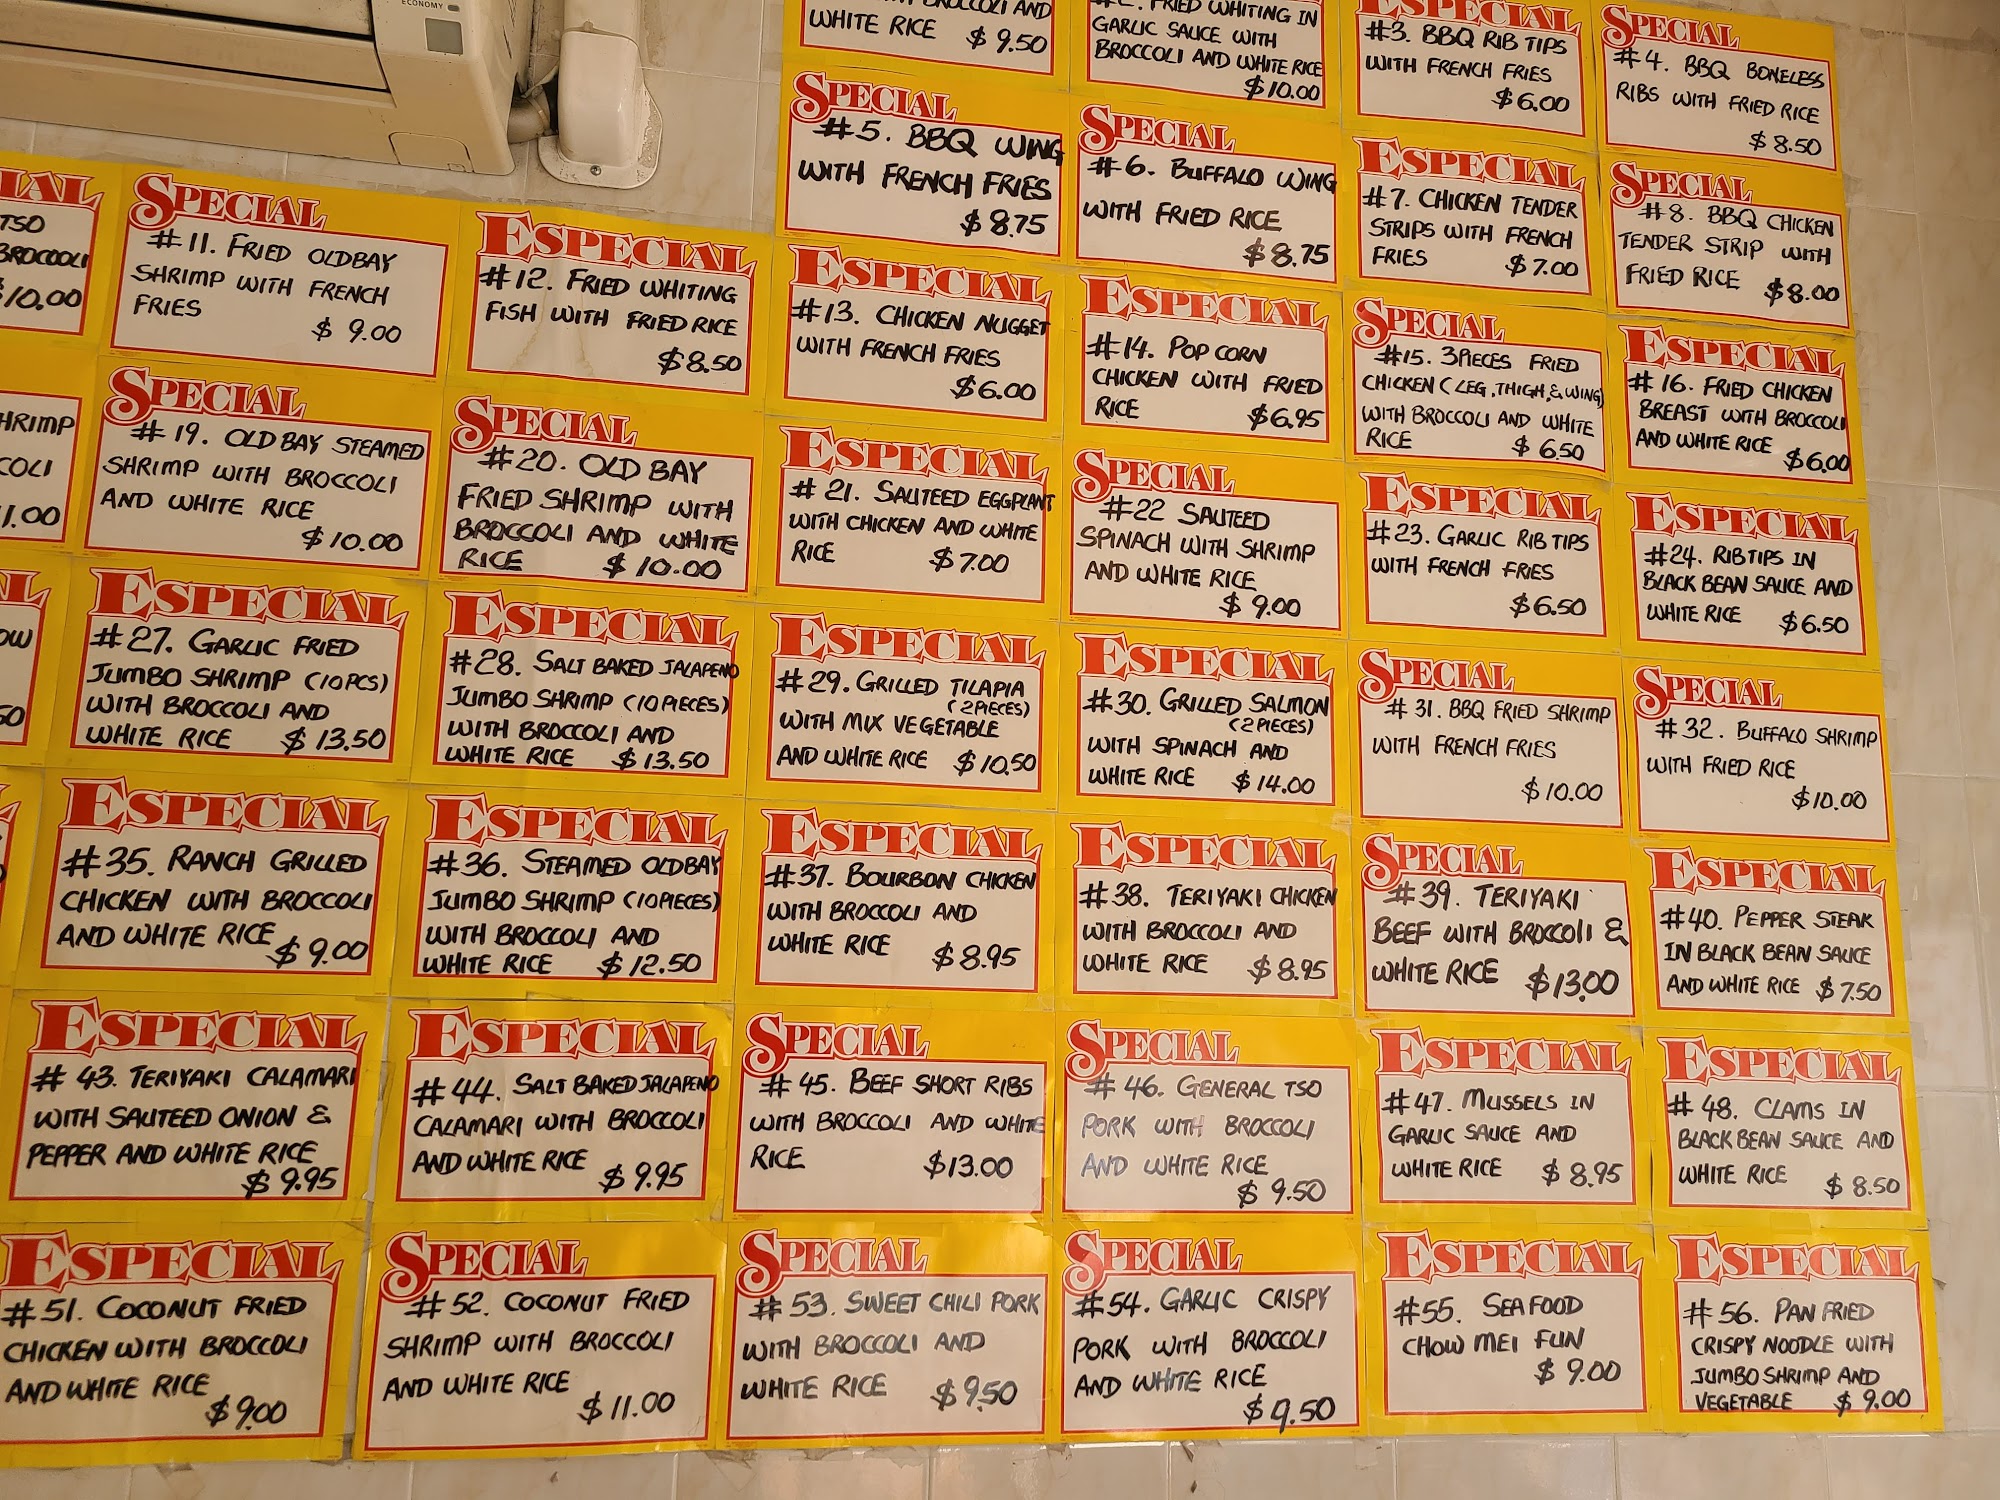 ECONOMY
BROCCOLI AND
WHITE RICE $9.50
FRIED WHITING IN
GARLIC SAUCE WITH
BROCCOLI AND WHITE RICE
$10.00
ESPECIAL
#3. BBQ RIB TIPS
WITH FRENCH FRIES
$6.00
SPECIAL
#4. BBQ BONELESS
RIBS WITH FRIED RICE
$8.50
SPECIAL
#5. BBQ WING
WITH FRENCH FRIES
$8.75
SPECIAL
#6. BUFFALO WING
WITH FRIED RICE
$8.75
ESPECIAL
#7. CHICKEN TENDER
STRIPS WITH FRENCH
FRIES $7.00
SPECIAL
#8. BBQ CHICKEN
TENDER STRIP WITH
FRIED RICE $8.00
TSO
BROCCOLI
$10.00
SPECIAL
#11. FRIED OLDBAY
SHRIMP WITH FRENCH
FRIES $9.00
ESPECIAL
#12. FRIED WHITING
FISH WITH FRIED RICE
$8.50
ESPECIAL
#13. CHICKEN NUGGET
WITH FRENCH FRIES
$6.00
ESPECIAL
#14. POP CORN
CHICKEN WITH FRIED
RICE $6.95
SPECIAL
#15. 3PIECES FRIED
CHICKEN (LEG, THIGH, & WING)
WITH BROCCOLI AND WHITE
RICE $6.50
ESPECIAL
#16. FRIED CHICKEN
BREAST WITH BROCCOLI
AND WHITE RICE $6.00
SPECIAL
#19. OLD BAY STEAMED
SHRIMP WITH BROCCOLI
AND WHITE RICE
$10.00
SPECIAL
#20. OLD BAY
FRIED SHRIMP WITH
BROCCOLI AND WHITE
RICE $10.00
ESPECIAL
#21. SAUTEED EGGPLANT
WITH CHICKEN AND WHITE
RICE $7.00
SPECIAL
#22 SAUTEED
SPINACH WITH SHRIMP
AND WHITE RICE
$9.00
ESPECIAL
#23. GARLIC RIB TIPS
WITH FRENCH FRIES
$6.50
ESPECIAL
#24. RIB TIPS IN
BLACK BEAN SAUCE AND
WHITE RICE $6.50
ESPECIAL
#27. GARLIC FRIED
JUMBO SHRIMP (10PCS)
WITH BROCCOLI AND
WHITE RICE $13.50
ESPECIAL
#28. SALT BAKED JALAPENO
JUMBO SHRIMP (10PIECES)
WITH BROCCOLI AND
WHITE RICE $13.50
ESPECIAL
#29. GRILLED TILAPIA
(2PIECES)
WITH MIX VEGETABLE
AND WHITE RICE $10.50
ESPECIAL
#30. GRILLED SALMON
(2PIECES)
WITH SPINACH AND
WHITE RICE $14.00
SPECIAL
#31. BBQ FRIED SHRIMP
WITH FRENCH FRIES
$10.00
SPECIAL
#32. BUFFALO SHRIMP
WITH FRIED RICE
$10.00
ESPECIAL
#35. RANCH GRILLED
CHICKEN WITH BROCCOLI
AND WHITE RICE $9.00
ESPECIAL
#36. STEAMED OLDBAY
JUMBO SHRIMP (10PIECES)
WITH BROCCOLI AND
WHITE RICE $12.50
ESPECIAL
#37. BOURBON CHICKEN
WITH BROCCOLI AND
WHITE RICE $8.95
ESPECIAL
#38. TERIYAKI CHICKEN
WITH BROCCOLI AND
WHITE RICE $8.95
SPECIAL
#39. TERIYAKI
BEEF WITH BROCCOLI &
WHITE RICE $13.00
ESPECIAL
#40. PEPPER STEAK
IN BLACK BEAN SAUCE
AND WHITE RICE $7.50
ESPECIAL
#43. TERIYAKI CALAMARI
WITH SAUTEED ONION &
PEPPER AND WHITE RICE
$9.95
ESPECIAL
#44. SALT BAKED JALAPENO
CALAMARI WITH BROCCOLI
AND WHITE RICE $9.95
SPECIAL
#45. BEEF SHORT RIBS
WITH BROCCOLI AND WHITE
RICE $13.00
SPECIAL
#46. GENERAL TSO
PORK WITH BROCCOLI
AND WHITE RICE
$9.50
ESPECIAL
#47. MUSSELS IN
GARLIC SAUCE AND
WHITE RICE $8.95
ESPECIAL
#48. CLAMS IN
BLACK BEAN SAUCE AND
WHITE RICE $8.50
ESPECIAL
#51. COCONUT FRIED
CHICKEN WITH BROCCOLI
AND WHITE RICE
$9.00
SPECIAL
#52. COCONUT FRIED
SHRIMP WITH BROCCOLI
AND WHITE RICE
$11.00
SPECIAL
#53. SWEET CHILI PORK
WITH BROCCOLI AND
WHITE RICE $9.50
SPECIAL
#54. GARLIC CRISPY
PORK WITH BROCCOLI
AND WHITE RICE
$9.50
ESPECIAL
#55. SEAFOOD
CHOW MEI FUN
$9.00
ESPECIAL
#56. PAN FRIED
CRISPY NOODLE WITH
JUMBO SHRIMP AND
VEGETABLE $9.00